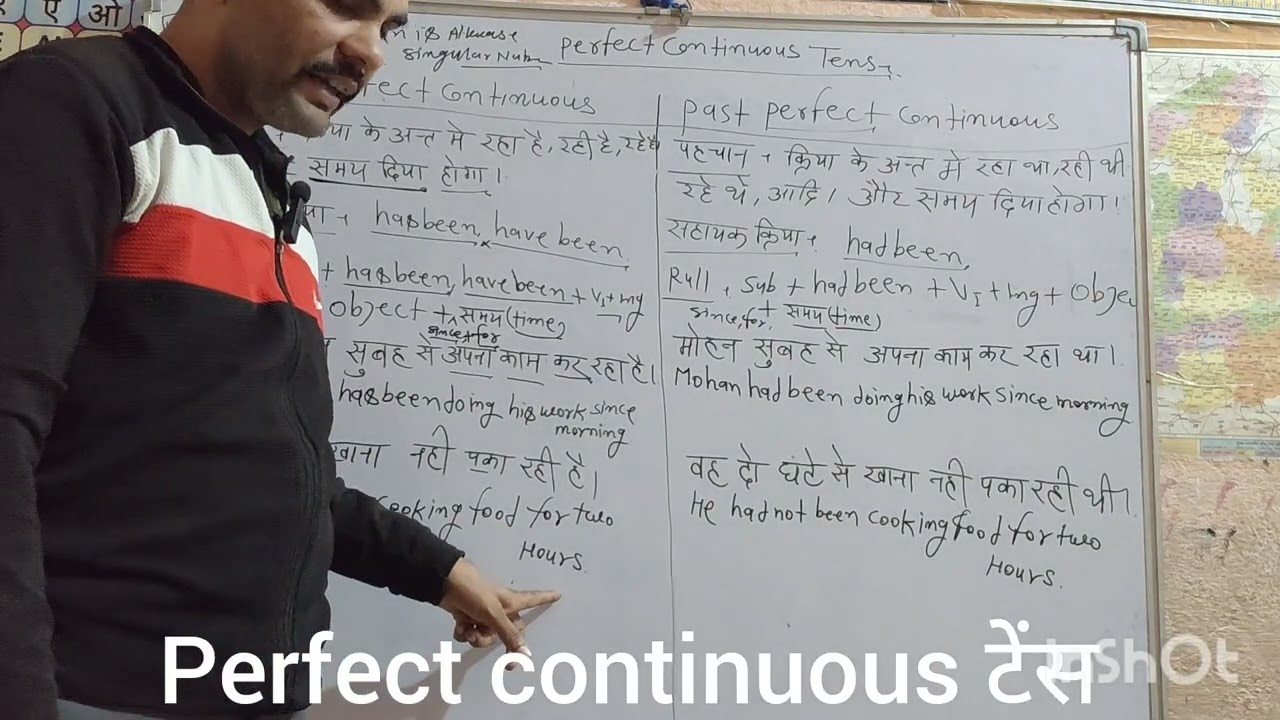 ए ओ
is Alwase
singular Nub
Perfect Continuous Tens
Continuous
के अन्त मे रहा है, रही है, रहे है
समय दिया होगा।
hasbeen, have been
+ hasbeen, have been + V1 + ing
Object + समय (time)
since, for
सुबह से अपना काम कर रहा है।
hasbeen doing his work since
morning
खाना नही पका रही है।
cooking food for two
Hours.
Past perfect Continuous
पहचान + क्रिया के अन्त मे रहा था, रही थी
रहे थे, आदि। और समय दिया होगा।
सहायक क्रिया + had been,
Rull, Sub + had been + VI + ing + Objec
since, for, + समय (time)
मोहन सुबह से अपना काम कर रहा था।
Mohan had been doing his work since morning
वह दो घंटे से खाना नही पका रही थी।
He had not been cooking food for two
Hours.
Perfect continuous टेंस
InShOt